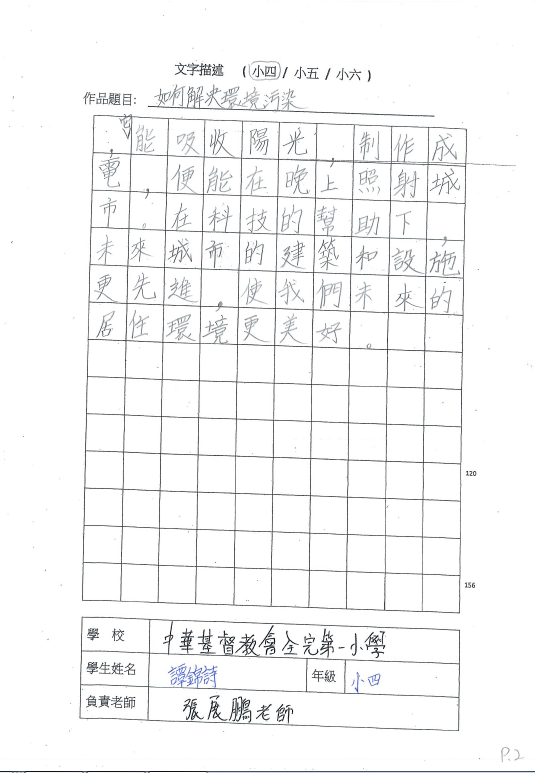 文字描述 ( 小四 / 小五 / 小六 )
作品題目: 如何解决環境污染
，它能吸收陽光，制作成
電，便能在晚上照射城
市。在科技的幫助下，
未來城市的建築和設施
更先進，使我們未來的
居住環境更美好。
120
156
學 校 中華基督教會全完第一小學
學生姓名 譚錦詩 年級 小四
負責老師 張展鵬老師
P.2